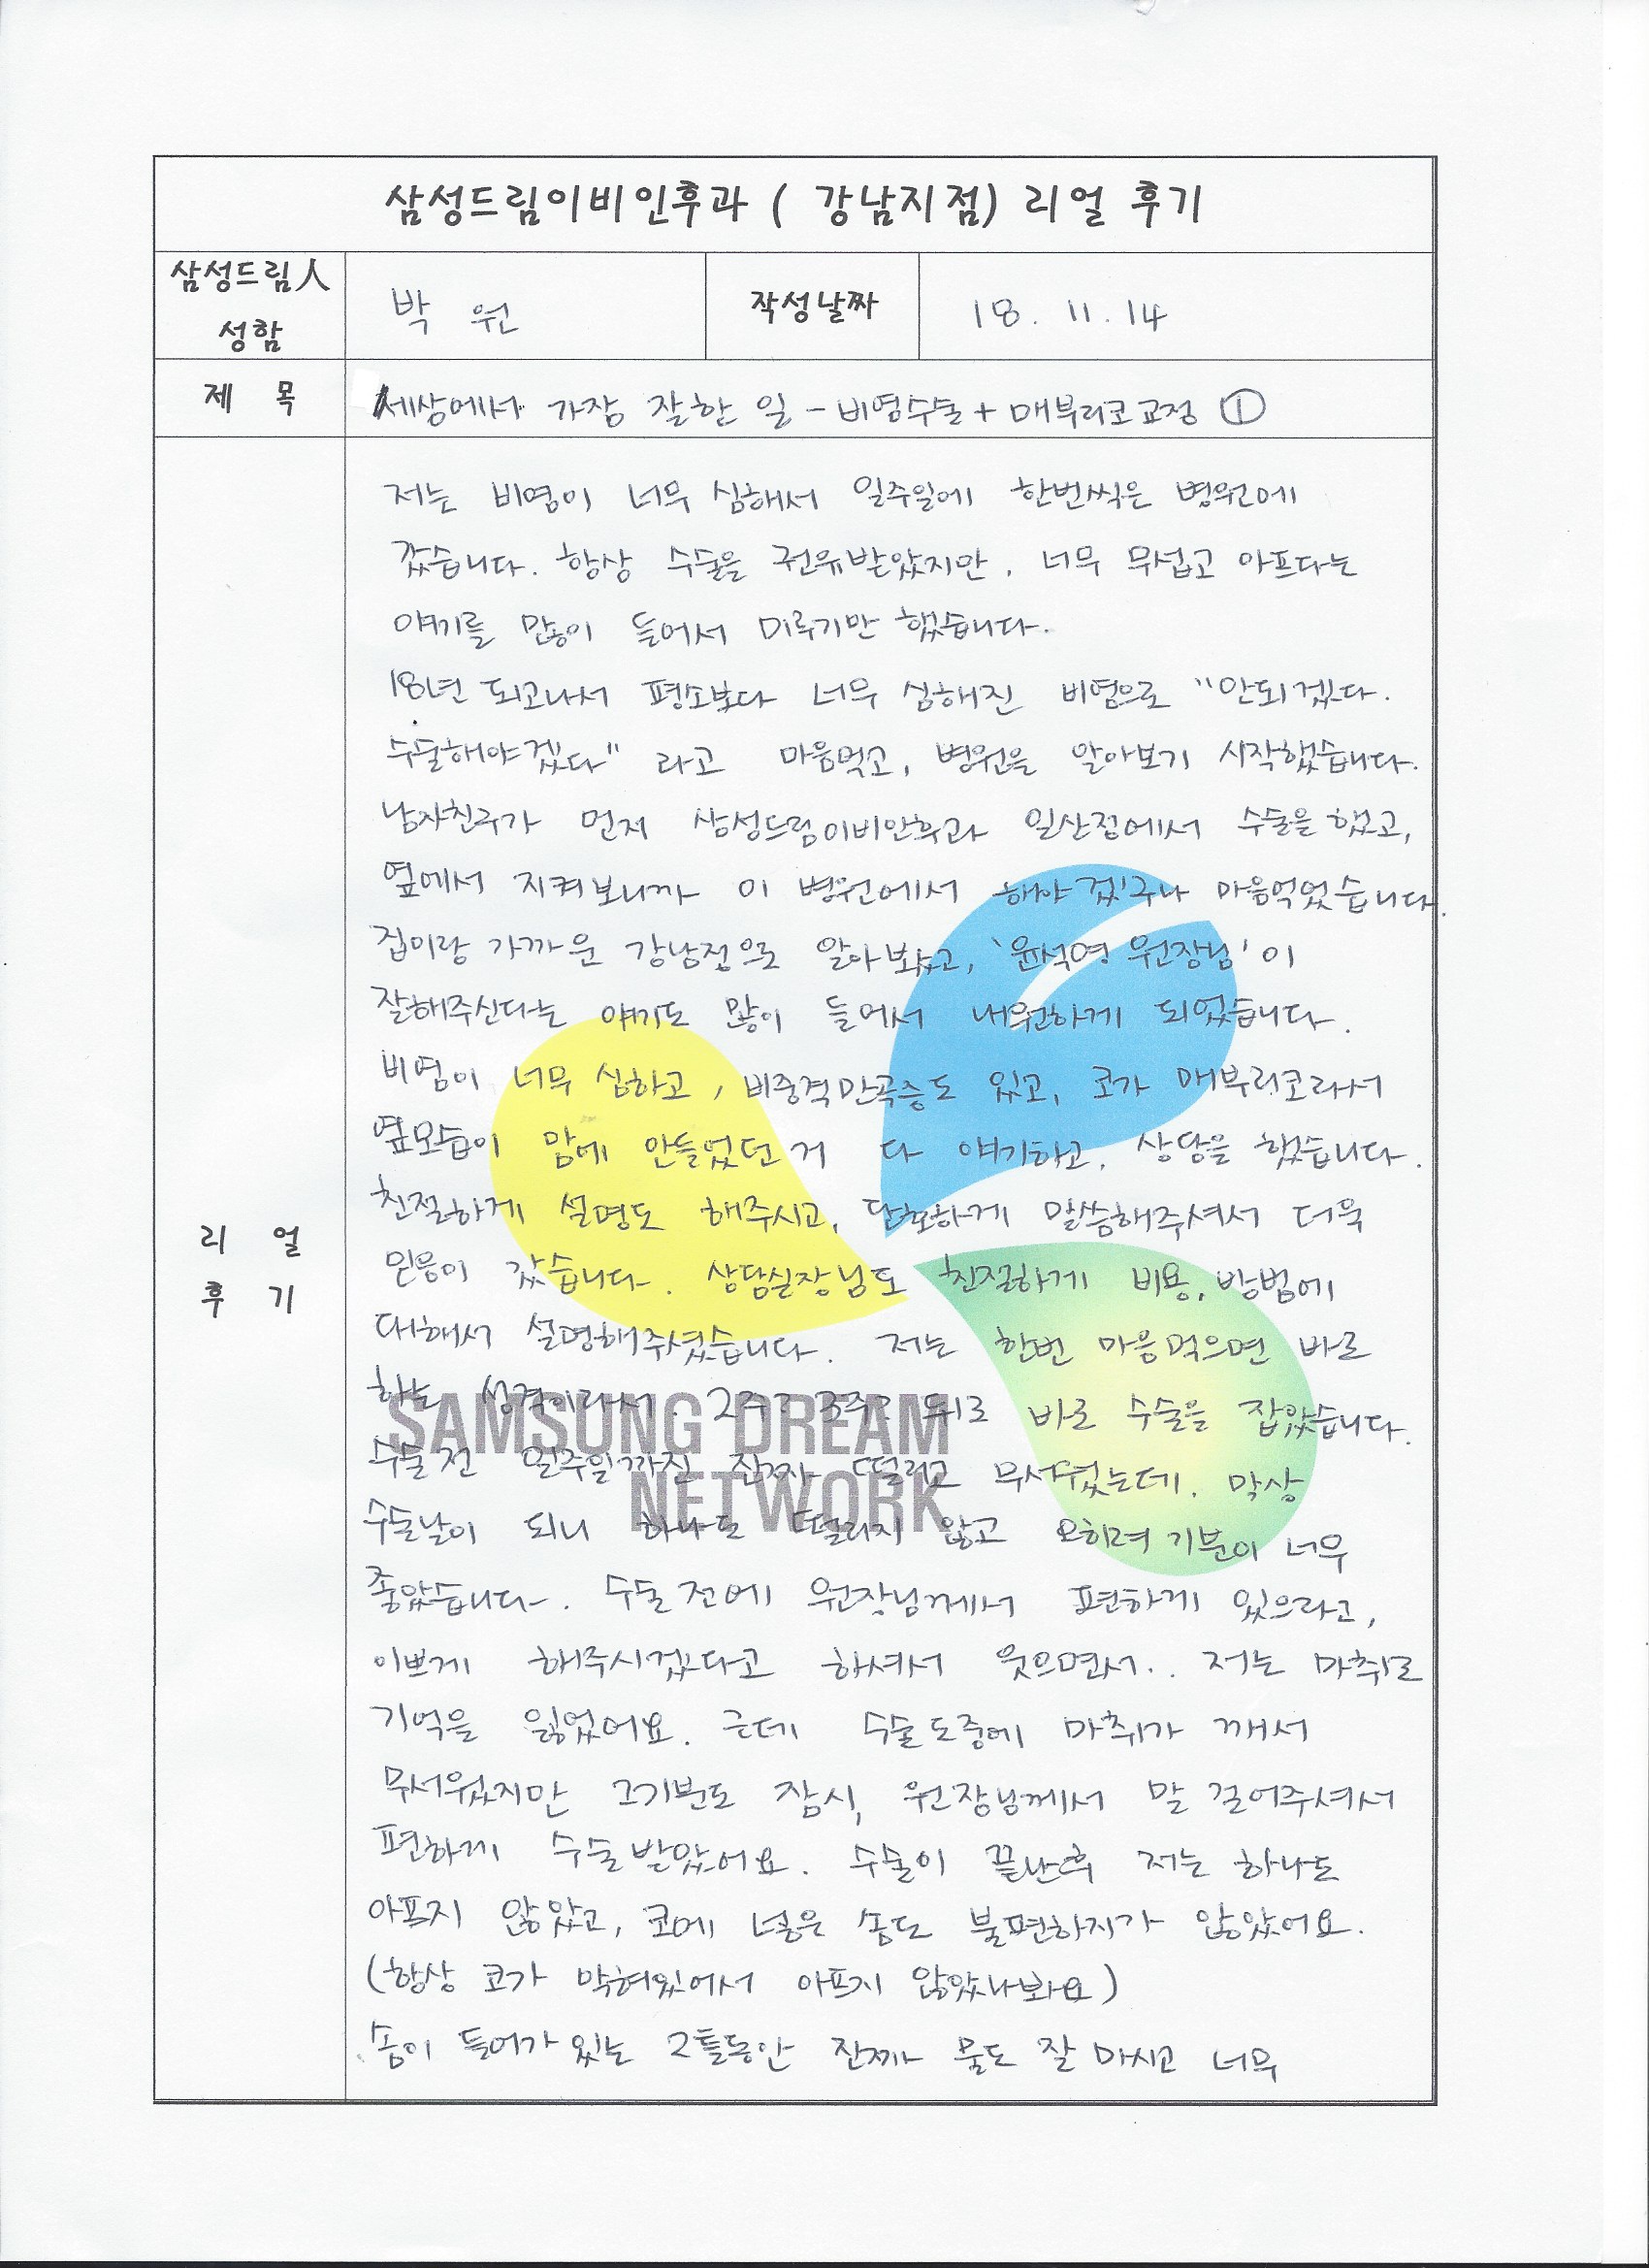 삼성드림이비인후과 ( 강남지점) 리얼 후기
삼성드림人 성함
박 원
작성날짜
18. 11. 14
제 목
세상에서 가장 잘한 일 - 비염수술 + 매부리코교정 ①
리 얼
후 기
저는 비염이 너무 심해서 일주일에 한번씩은 병원에
갔습니다. 항상 수술을 권유받았지만, 너무 무섭고 아프다는
얘기를 많이 들어서 미루기만 했습니다.
18년 되고나서 평소보다 너무 심해진 비염으로 "안되겠다.
수술해야겠다" 라고 마음먹고, 병원을 알아보기 시작했습니다.
남자친구가 먼저 삼성드림이비인후과 일산점에서 수술을 했고,
옆에서 지켜보니까 이 병원에서 해야겠구나 마음먹었습니다.
집이랑 가까운 강남점으로 알아봤고, '윤석영 원장님'이
잘해주신다는 얘기도 많이 들어서 내원하게 되었습니다.
비염이 너무 심하고, 비중격만곡증도 있고, 코가 매부리코라서
옆모습이 맘에 안들었던거 다 얘기하고, 상담을 했습니다.
친절하게 설명도 해주시고, 단호하게 말씀해주셔서 더욱
믿음이 갔습니다. 상담실장님도 친절하게 비용, 방법에
대해서 설명해주셨습니다. 저는 한번 마음먹으면 바로
하는 성격이라서 2주? 3주? 뒤로 바로 수술을 잡았습니다.
수술 전 일주일까진 진짜 떨리고 무서웠는데, 막상
수술날이 되니 하나도 떨리지 않고 오히려 기분이 너무
좋았습니다. 수술 전에 원장님께서 편하게 있으라고,
이쁘게 해주시겠다고 하셔서 웃으면서.. 저는 마취로
기억을 잃었어요. 근데 수술도중에 마취가 깨서
무서웠지만 그기분도 잠시, 원장님께서 말 걸어주셔서
편하게 수술받았어요. 수술이 끝난후 저는 하나도
아프지 않았고, 코에 넣은 솜도 불편하지가 않았어요.
(항상 코가 막혀있어서 아프지 않았나봐요)
솜이 들어가 있는 2틀동안 진짜 물도 잘 마시고 너무
SAMSUNG DREAM
NETWORK